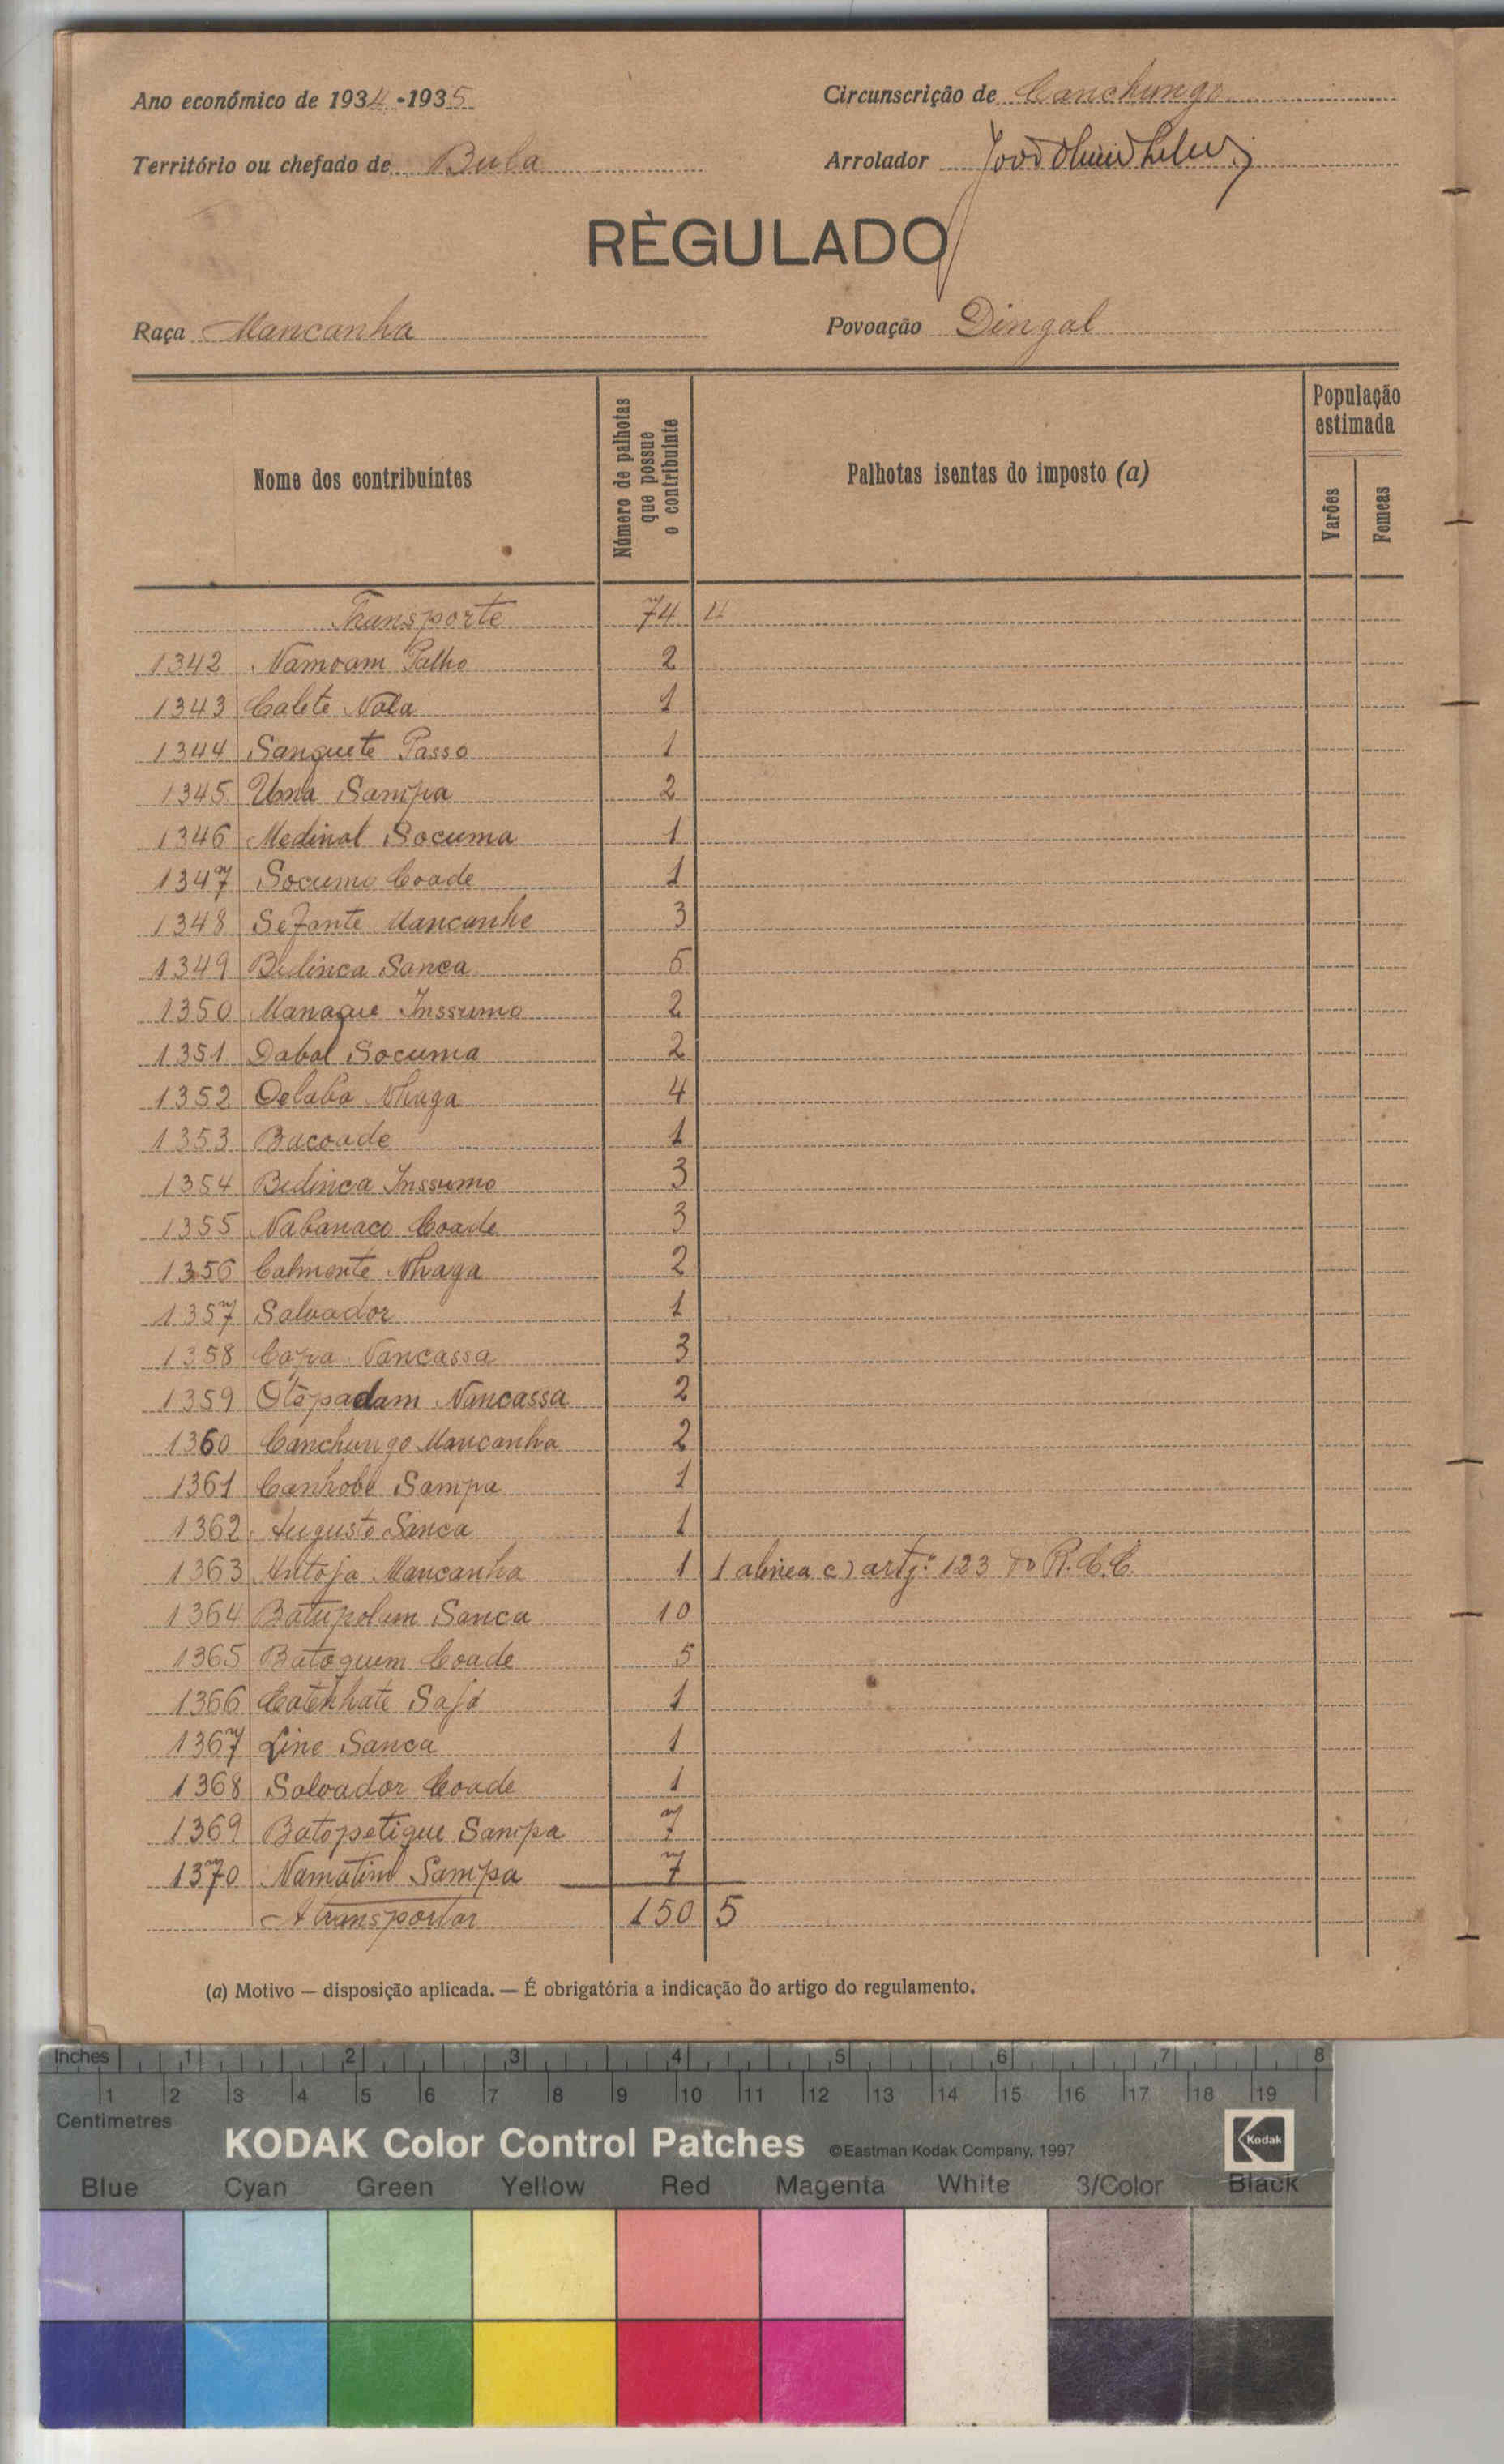 Ano económico de 1934-1935
Circunscrição de Canchungo
Território ou chefado de Bula
Arrolador
RÈGULADO
Raça Mancanha
Povoação Dingal
Nome dos contribuintes
Número de palhotas que possue o contribuinte
Palhotas isentas do imposto (a)
População estimada
Varões
Femeas
Transporte 74 4
1342 Namoam Palho 2
1343 Calete Nala 1
1344 Sanquete Passo 1
1345 Uma Sampa 2
1346 Medinal Socuma 1
1347 Socumo Coade 1
1348 Sefante Mancanhe 3
1349 Bedinca Sanca 5
1350 Manaque Inssumo 2
1351 Dabal Socuma 2
1352 Oelaba Nhaga 4
1353 Bacoade 1
1354 Bedinca Inssumo 3
1355 Nabanaco Coade 3
1356 Calmente Nhaga 2
1357 Salvador 1
1358 Capa Vancassa 3
1359 Otepadam Nancassa 2
1360 Canchungo Mancanha 2
1361 Canhobe Sampa 1
1362 Augusto Sanca 1
1363 Antoja Mancanha 1 1 alinea c) artg.º 123 do R.C.C.
1364 Batupolum Sanca 10
1365 Batoquem Coade 5
1366 Catenhate Safo 1
1367 Line Sanca 1
1368 Salvador Coade 1
1369 Batopetique Sampa 7
1370 Namatim Sampa 7
A transportar 150 5
(a) Motivo — disposição aplicada. — É obrigatória a indicação do artigo do regulamento.
Inches 1 2 3 4 5 6 7 8
1 2 3 4 5 6 7 8 9 10 11 12 13 14 15 16 17 18 19
Centimetres
KODAK Color Control Patches ©Eastman Kodak Company, 1997 Kodak
Blue Cyan Green Yellow Red Magenta White 3/Color Black